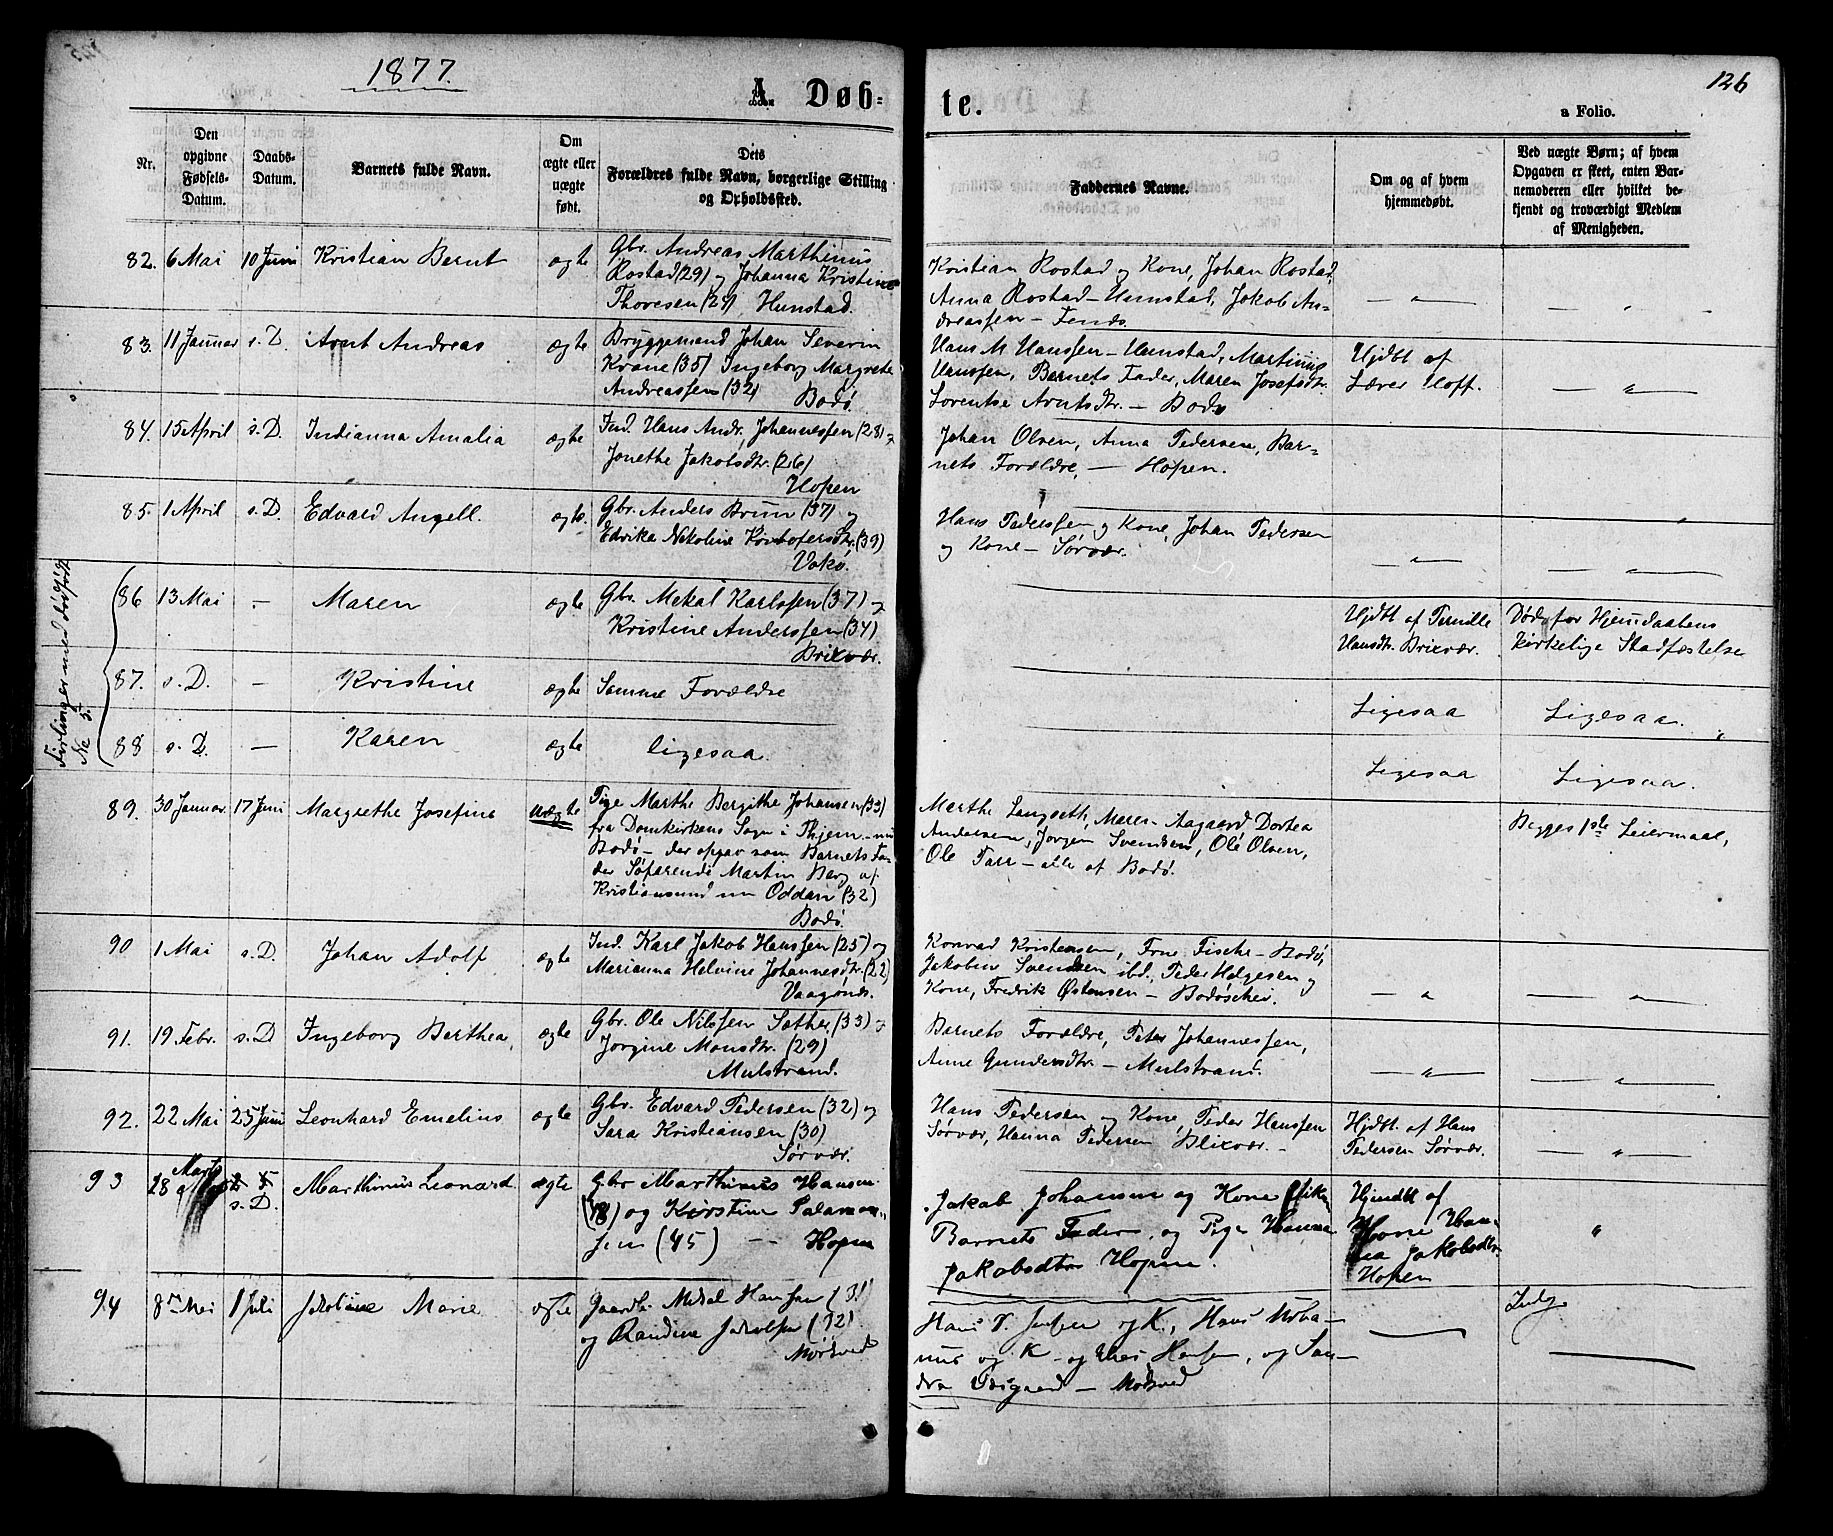 1877.
126
A. Døb-
te.
a Folio.
Nr.
Den opgivne Fødsels-Datum.
Daabs-Datum.
Barnets fulde Navn.
Om ægte eller uægte født.
Dets Forældres fulde Navn, borgerlige Stilling og Opholdssted.
Faddernes Navne.
Om og af hvem hjemmedøbt.
Ved uægte Børn; af hvem Opgaven er skeet, enten Barnemoderen eller hvilket bekjendt og troværdigt Medlem af Menigheden.
82. 6 Mai 10 Juni Kristian Bernt ægte
Gbr. Andreas Marthinus
Rostad (29) og Johanna Kristine
Thoresen (29) Hunstad.
Kristian Rostad og Kone, Johan Rostad,
Anna Rostad - Hunstad, Jakob An-
dreassen -
83. 11 Januar s. D. Arnt Andreas ægte
Bryggemand Johan Severin
Krane (35) Ingeborg Margrete
Andreassen (32) Bodø.
Hans M Hanssen - Hunstad, Martinus
Hanssen, Barnets Fader, Maren Josefsdtr.
Lorentse Arntsdtr. - Bodø
Hjdbt af
Lærer Hoff.
84. 15 April s. D. Indianna Amalia ægte
Ind. Hans Andr. Johannessen (28) og
Jonethe Jakobsdtr. (26)
Hopen
Johan Olsen, Anna Pedersen, Bar-
nets Forældre, - Hopen.
85. 1 April s. D. Edvard Angell. ægte.
Gbr. Anders Brun (37) og
Edvika Nikoline Kristofersdtr. (39)
Vokø.
Hans Pederssen og Kone, Johan Pedersen
og Kone - Sørvær.
Firlinger med dødført
No 5.
86 13 Mai - Maren ægte
Gbr. Mekal Karlssen (37) og
Kristine Anderssen (34)
Brixvær.
Hjdbt af Pernille
Hansdtr. Brixvær.
Død før Hjemdaabens
kirkelige Stadfæstelse
87. s. D. - Kristine ægte Samme Forældre
Ligesaa Ligesaa.
88 s. D. - Karen ægte ligesaa.
Ligesaa Ligesaa.
89. 30 Januar 17 Juni Margrethe Josefine uægte
Pige Marthe Bergithe Johansen (33)
fra Domkirkens Sogn i Thjem - nu
Bodø - der opgav som Barnets Fa-
der Søfarende Martin Berg af
Kristiansund nu Oddan (32)
Bodø.
Merthe Langseth, Maren Aagaard Dortea
Andersen, Jørgen Svendsen, Ole Olsen,
Ole Tarr - alle af Bodø.
Begges 1ste Leiermaal,
90 1 Mai s. D. Johan Adolf ægte
Ind. Karl Jakob Hanssen (25) og
Marianna Helvine Johannesdtr. (22)
Vaagønes.
Konrad Kristensen, Frue Fische - Bodø,
Jakobin Svendsen ibd. Peder Helgesen og
Kone, Fredrik Østensen - Bodøschei.
91. 19 Febr. s. D Ingeborg Berthea, ægte
Gbr. Ole Nilssen Sæther (33) og
Jorgine Monsdtr. (29)
Mulstrand.
Barnets Forældre, Peter Johannessen,
Anne Gundersdtr. - Mulstrand.
92. 22 Mai 25 Juni Leonhard Emelius ægte
Gbr. Edvard Pedersen (32) og
Sara Kristiansen (30)
Sørvær.
Hans Pedersen og Kone, Peder Hanssen
Sørvær, Hanna Pedersen Blixvær. -
Hjdbt. af Hans
Pedersen Sørvær.
93 28 Marts s. D. Marthinus Leonard ægte
Gbr Marthinus Hansen
(48) og Kirstine Palamon-
sen (45) - Hopen
Jakob Johansen og Kone
Barnets Fader, og Pige Hanna
Jakobsdtr Hopen.
Hjmdbt af
Kone Han-
na Jakobsdtr
Hopen
94 8de Mai 1 Juli Jakobine Marie ægte
Gaardb. Mikal Hansen (31)
og Randine Jakobsen (32)
Mørkved
Hans og K., Hans Urba-
nus og K - og og San-
dra - Mørkved